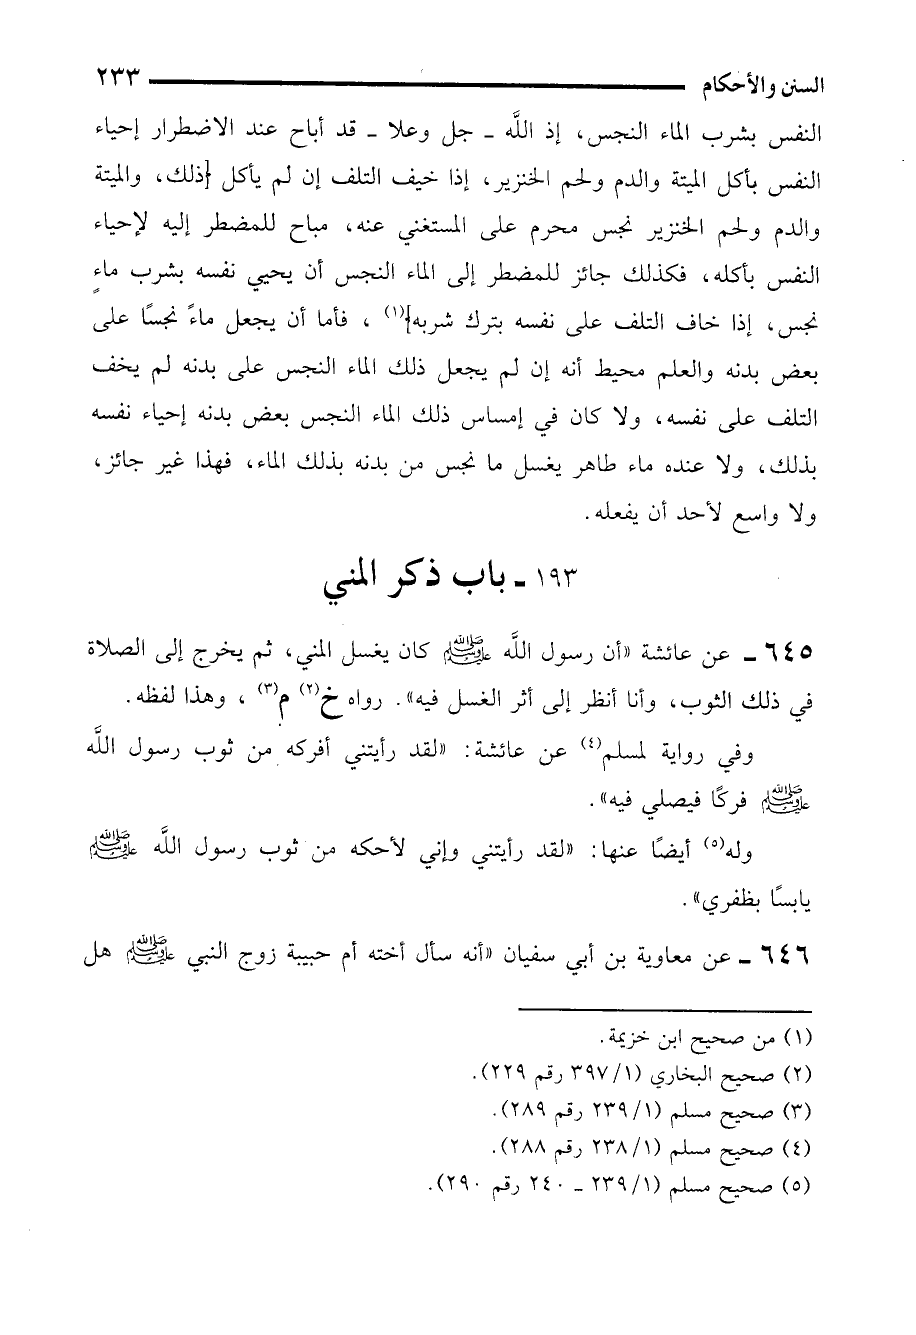 السنن والأحكام ٢٣٣
النفس بشرب الماء النجس، إذ اللَّه ـ جل وعلا ـ قد أباح عند الاضطرار إحياء
النفس بأكل الميتة والدم ولحم الخنزير، إذا خيف التلف إن لم يأكل {ذلك، والميتة
والدم ولحم الخنزير نجس محرم على المستغني عنه، مباح للمضطر إليه لإحياء
النفس بأكله، فكذلك جائز للمضطر إلى الماء النجس أن يحيي نفسه بشرب ماءٍ
نجس، إذا خاف التلف على نفسه بترك شربه}(١) ، فأما أن يجعل ماءً نجسًا على
بعض بدنه والعلم محيط أنه إن لم يجعل ذلك الماء النجس على بدنه لم يخف
التلف على نفسه، ولا كان في إمساس ذلك الماء النجس بعض بدنه إحياء نفسه
بذلك، ولا عنده ماء طاهر يغسل ما نجس من بدنه بذلك الماء، فهذا غير جائز،
ولا واسع لأحد أن يفعله.
١٩٣ ـ باب ذكر المني
٦٤٥ ـ عن عائشة «أن رسول اللَّه ﷺ كان يغسل المني، ثم يخرج إلى الصلاة
في ذلك الثوب، وأنا أنظر إلى أثر الغسل فيه». رواه خ(٢) م(٣) ، وهذا لفظه.
وفي رواية لمسلم(٤) عن عائشة: «لقد رأيتني أفركه من ثوب رسول اللَّه
ﷺ فركًا فيصلي فيه».
وله(٥) أيضًا عنها: «لقد رأيتني وإني لأحكه من ثوب رسول اللَّه ﷺ
يابسًا بظفري».
٦٤٦ ـ عن معاوية بن أبي سفيان «أنه سأل أخته أم حبيبة زوج النبي ﷺ هل
(١) من صحيح ابن خزيمة.
(٢) صحيح البخاري (١/ ٣٩٧ رقم ٢٢٩).
(٣) صحيح مسلم (١/ ٢٣٩ رقم ٢٨٩).
(٤) صحيح مسلم (١/ ٢٣٨ رقم ٢٨٨).
(٥) صحيح مسلم (١/ ٢٣٩ ـ ٢٤٠ رقم ٢٩٠).